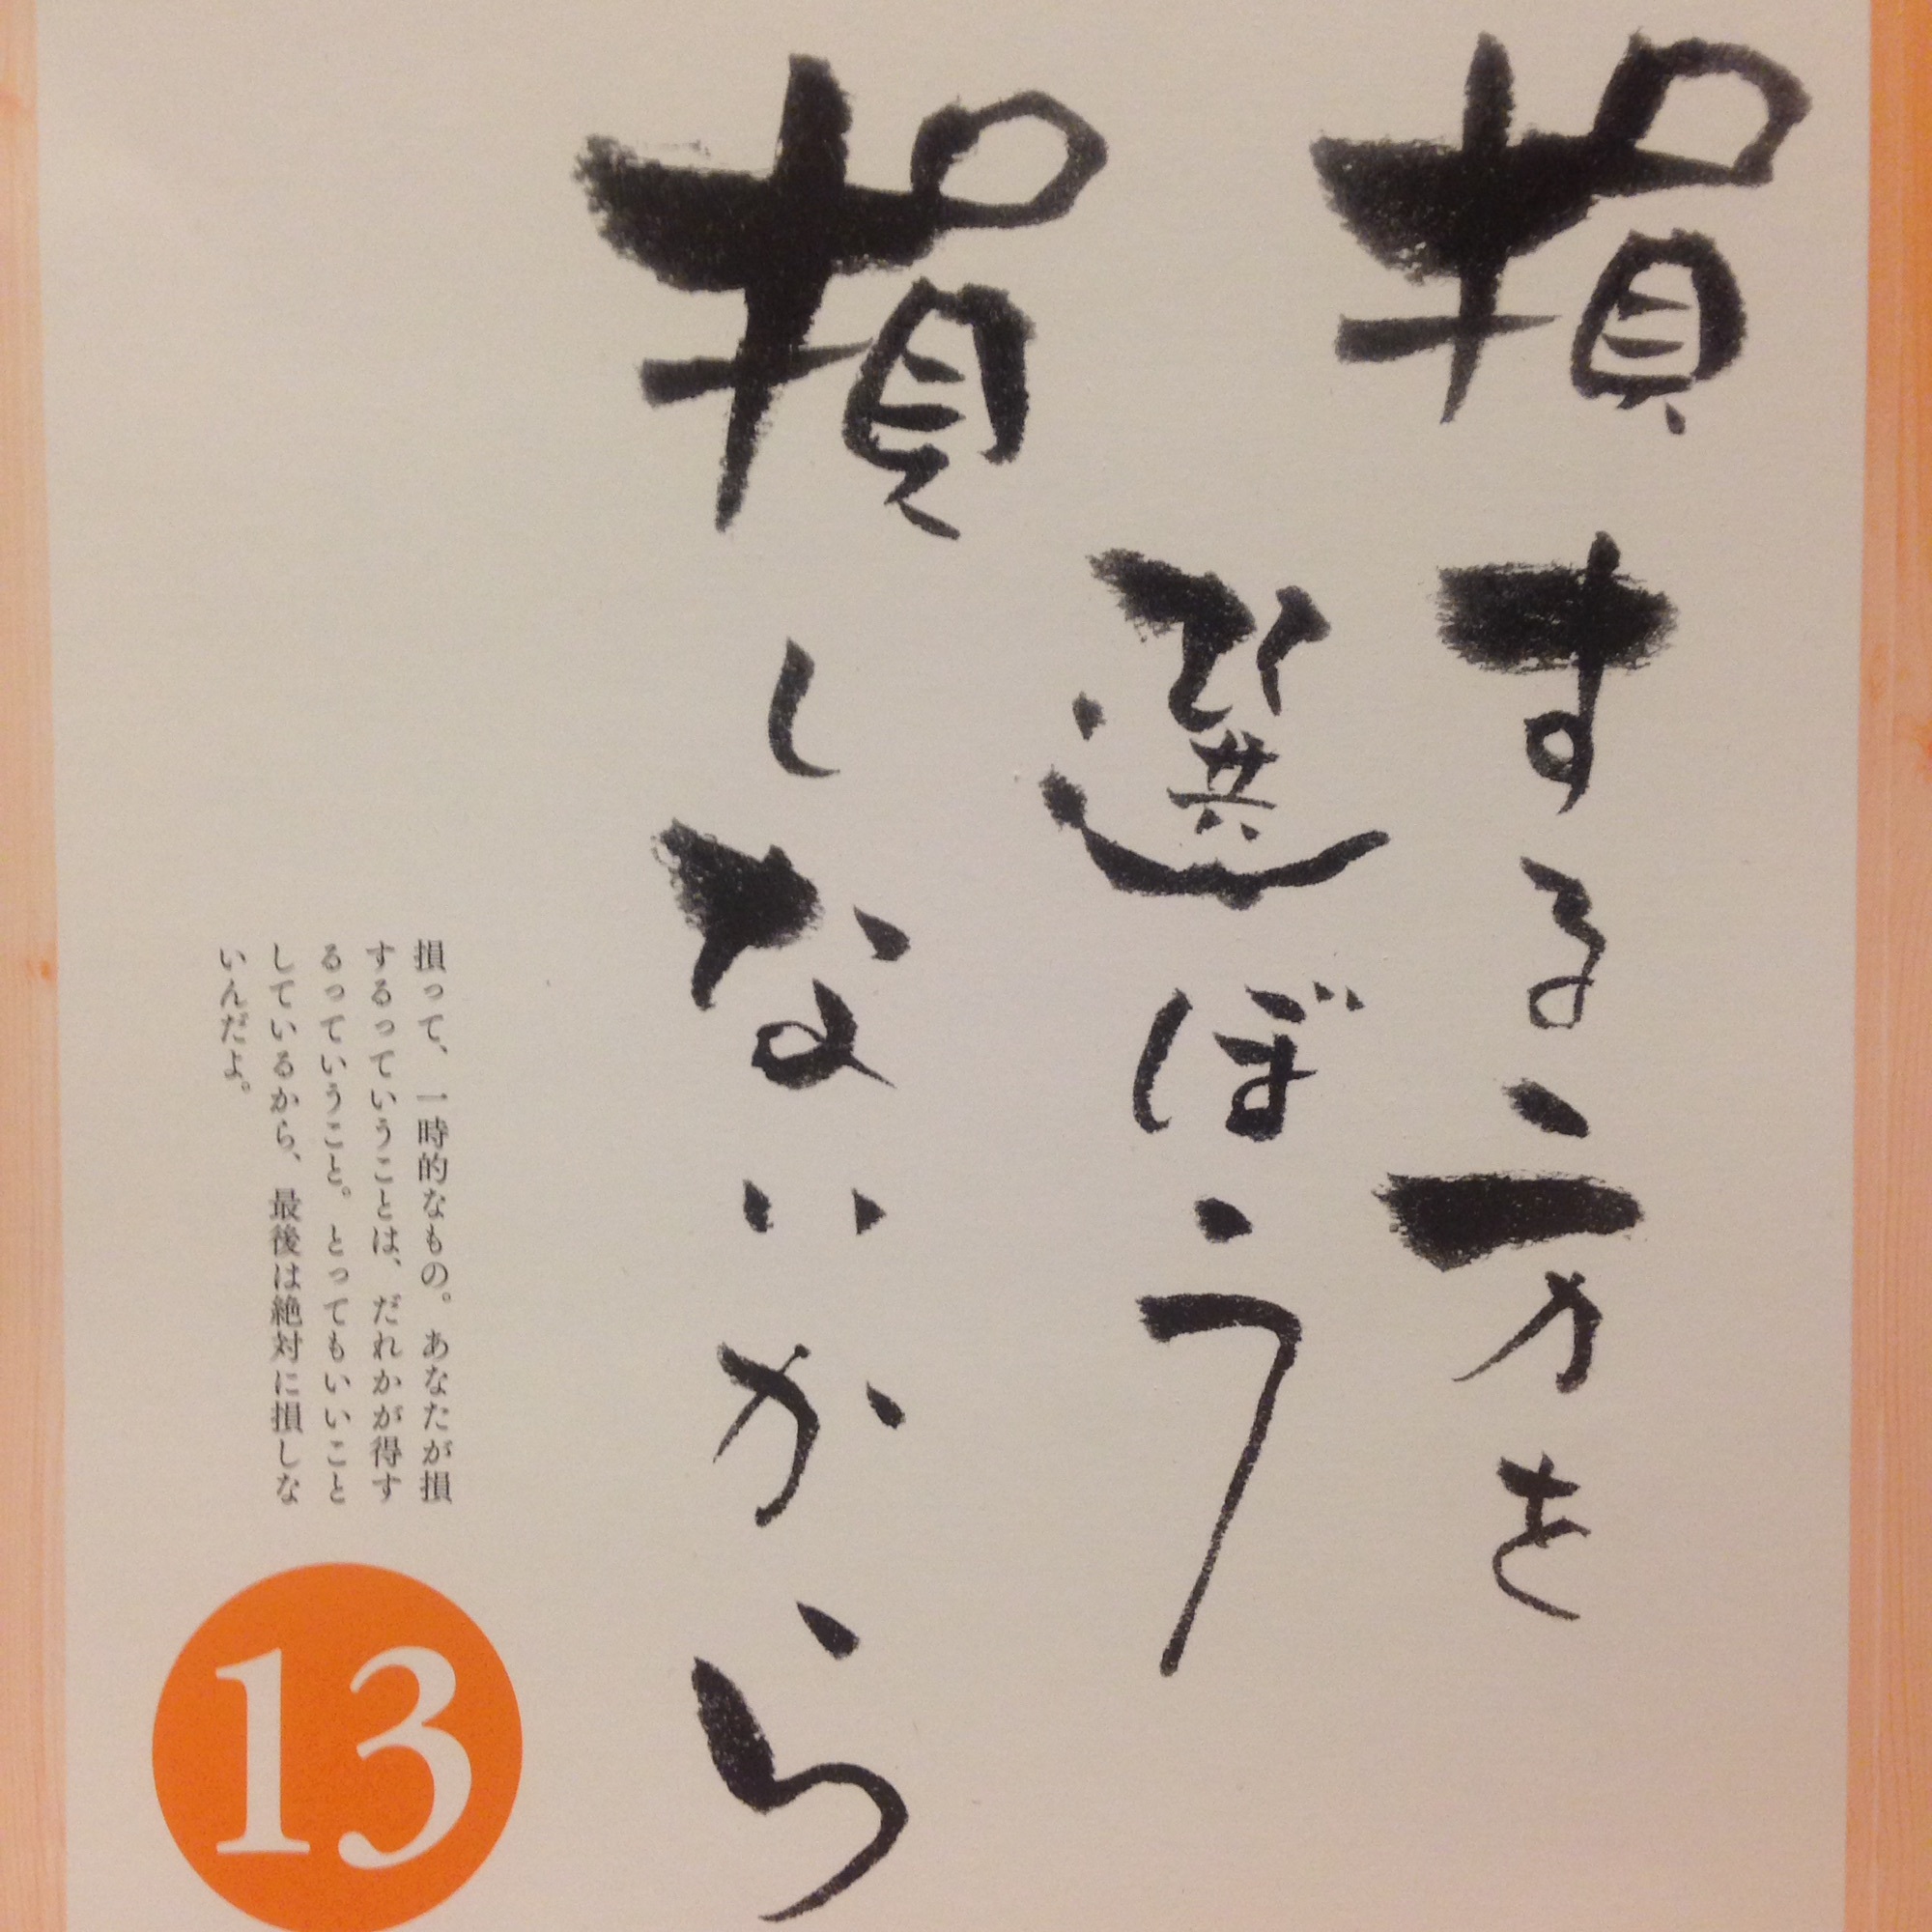 損する方を
選ぼう
損しないから
損って、一時的なもの。あなたが損
するっていうことは、だれかが得す
るっていうこと。とってもいいこと
しているから、最後は絶対に損しな
いんだよ。
13